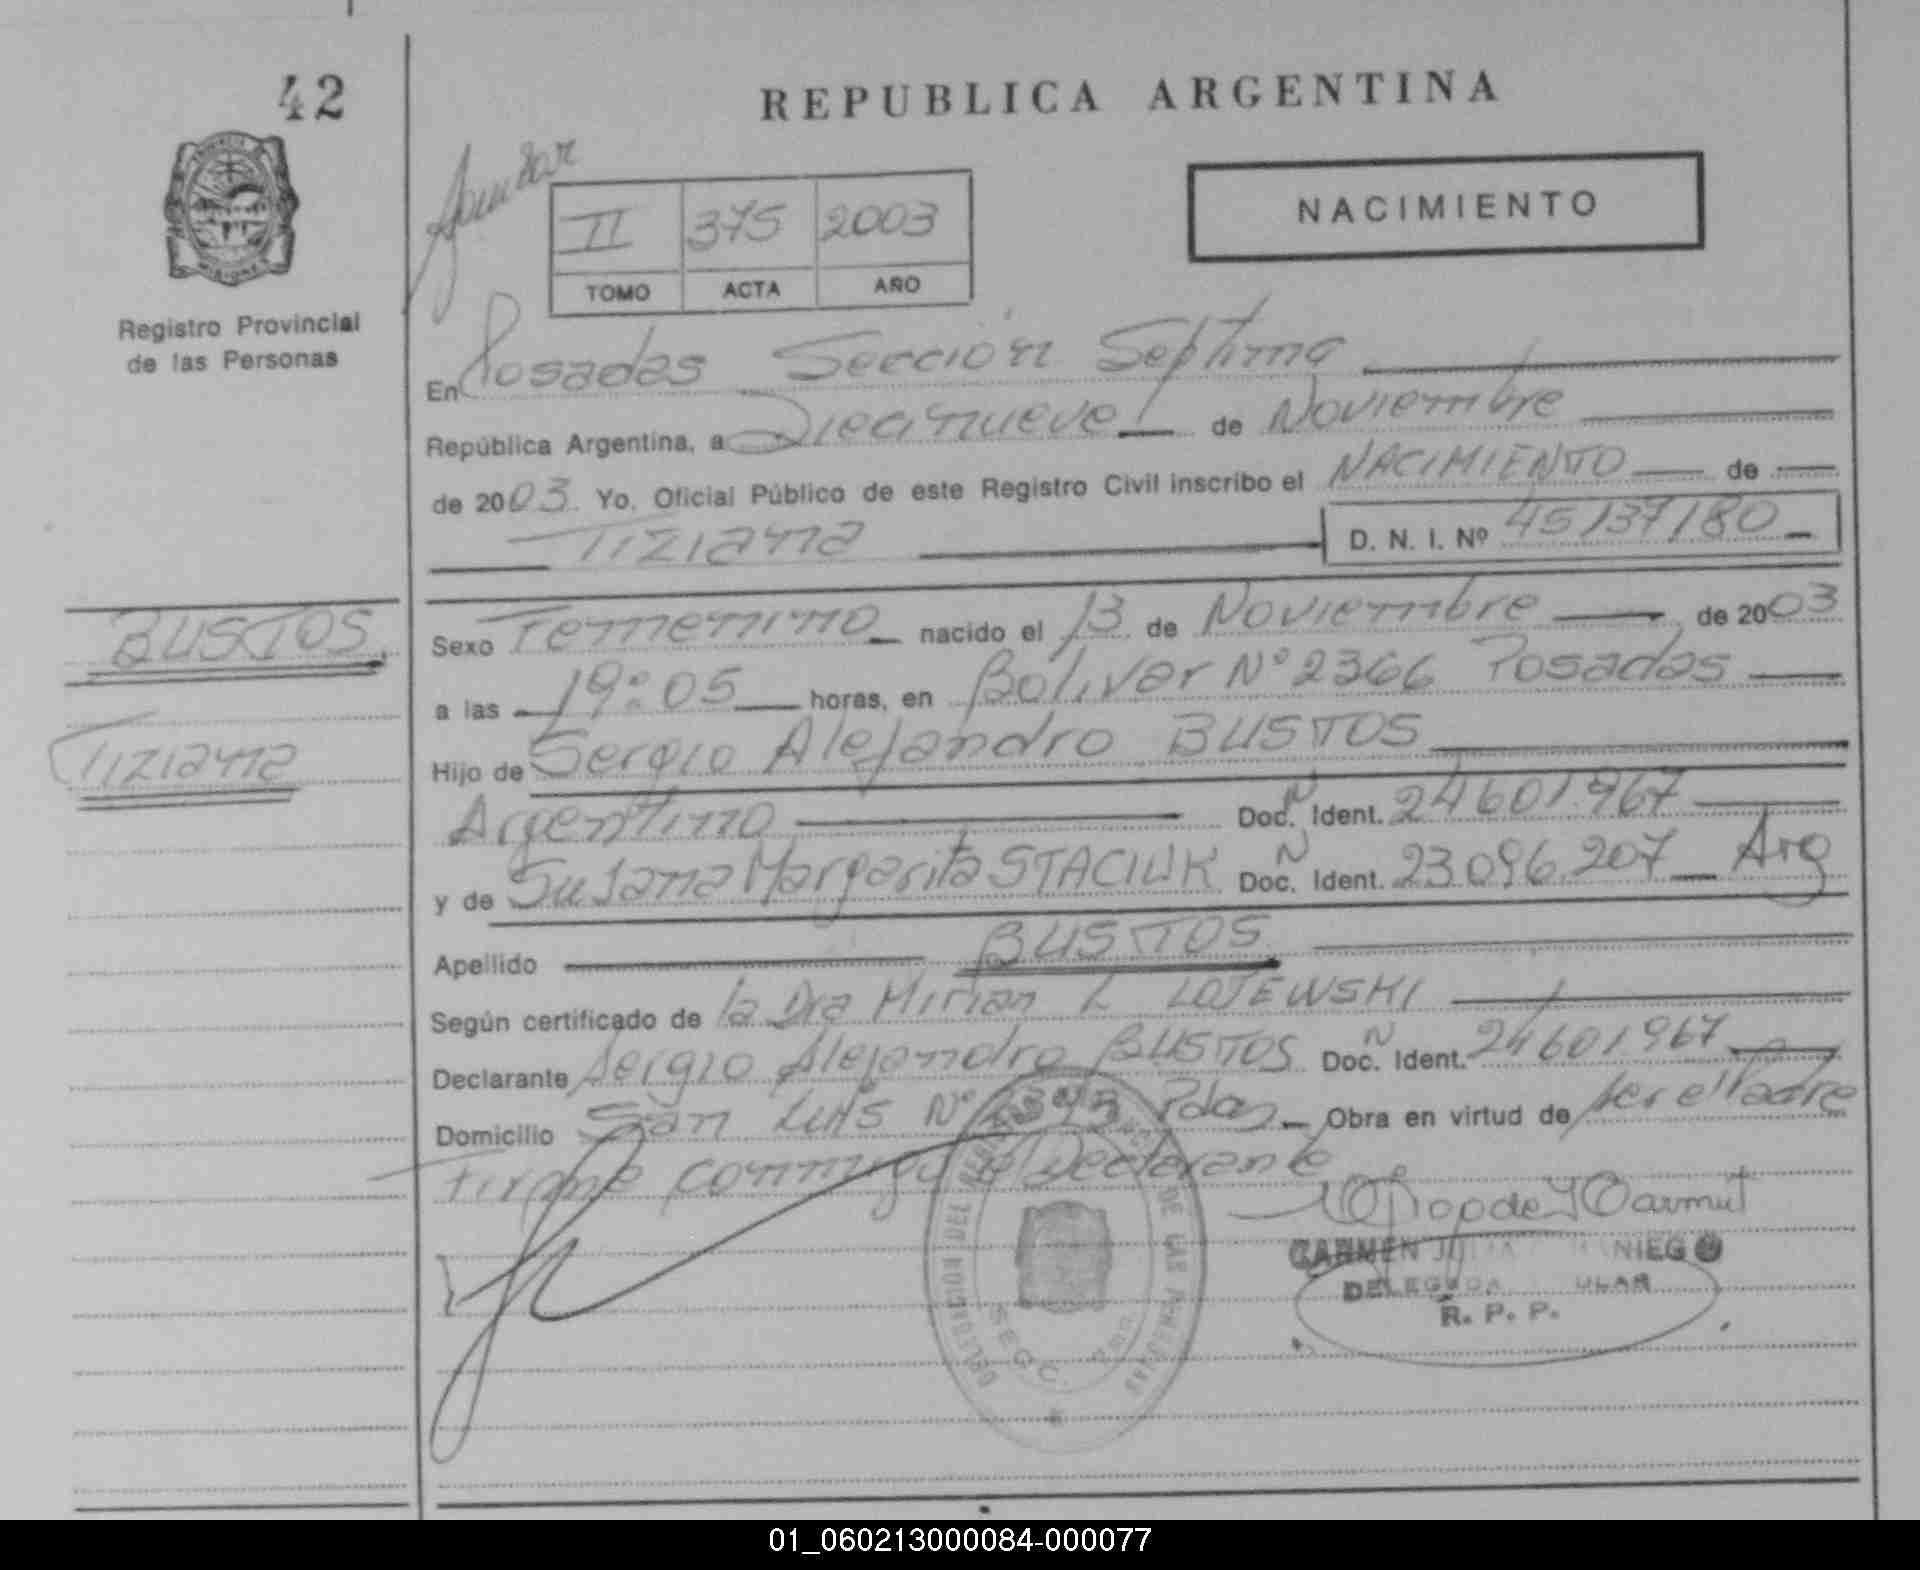 42
REPUBLICA ARGENTINA
PROVINCIA
MISIONES
Registro Provincial
de las Personas
II 375 2003
TOMO ACTA AÑO
NACIMIENTO
En Posadas Sección Septima
República Argentina, a Diecinueve de Noviembre
de 2003. Yo, Oficial Público de este Registro Civil inscribo el NACIMIENTO de
Tiziana D. N. I. Nº 45137180
BUSTOS
Tiziana
Sexo Femenino nacido el 13 de Noviembre de 2003
a las 19:05 horas, en Bolivar Nº 2366 Posadas
Hijo de Sergio Alejandro BUSTOS
Argentino Doc. N Ident. 24601967
y de Susana Margarita STACIUK Doc. N Ident. 23.096.207 Arg
Apellido BUSTOS
Según certificado de la Dra Mirian L LOJEWSKI
Declarante Sergio Alejandro BUSTOS Doc. N Ident. 24601967
Domicilio San Luis Nº Pdas Obra en virtud de ser el Padre
Firma conmigo el Declarante
DELEGACION DEL REGISTRO DE LAS PERSONAS
CARMEN JULIA
DELEGADA
R. P. P.
01_060213000084-000077